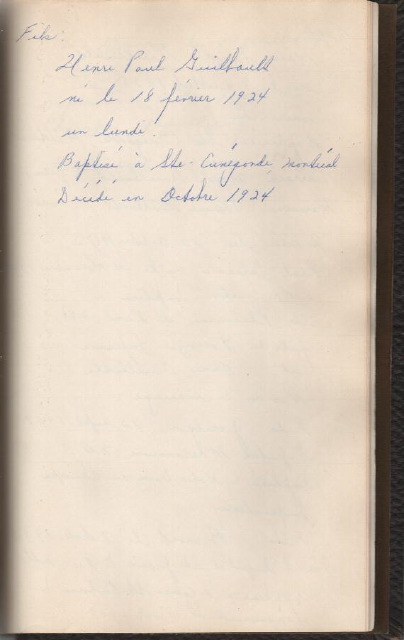 Fils:
Henri Paul Guilbault
né le 18 février 1924
un lundi.
Baptisé à Ste-Cunégonde, Montréal
Décédé en Octobre 1924